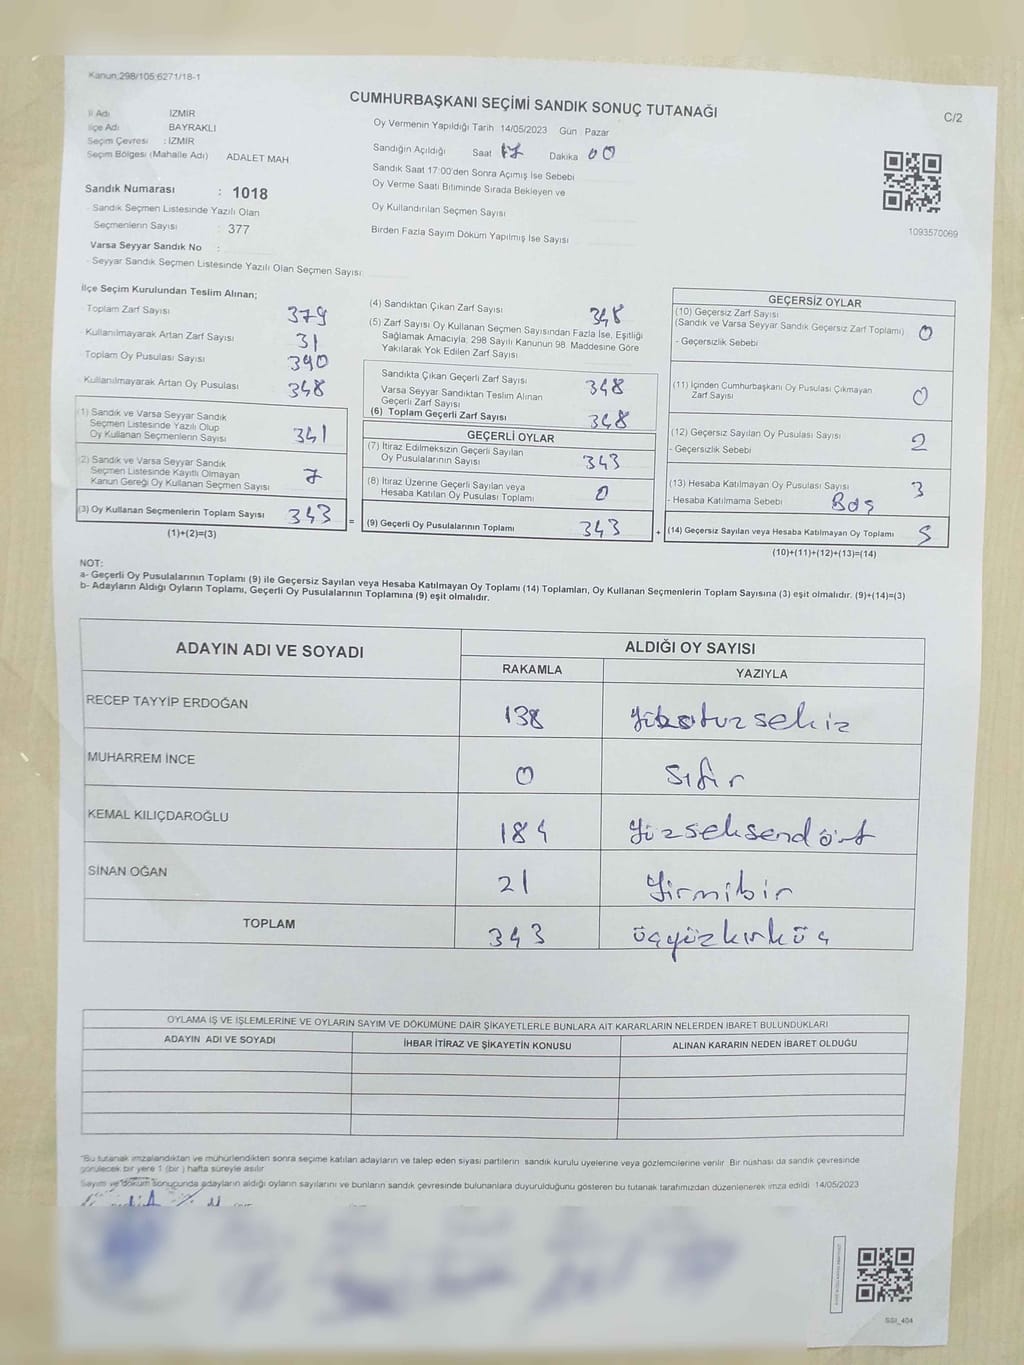 Kanun:298/105;6271/18-1
CUMHURBAŞKANI SEÇİMİ SANDIK SONUÇ TUTANAĞI
C/2
İl Adı İZMİR
İlçe Adı BAYRAKLI
Seçim Çevresi : İZMİR
Seçim Bölgesi (Mahalle Adı) ADALET MAH
Sandık Numarası : 1018
- Sandık Seçmen Listesinde Yazılı Olan
Seçmenlerin Sayısı : 377
Varsa Seyyar Sandık No :
- Seyyar Sandık Seçmen Listesinde Yazılı Olan Seçmen Sayısı:
Oy Vermenin Yapıldığı Tarih 14/05/2023 Gün Pazar
Sandığın Açıldığı Saat 17 Dakika 00
Sandık Saat 17:00'den Sonra Açımış İse Sebebi
Oy Verme Saati Bitiminde Sırada Bekleyen ve
Oy Kullandırılan Seçmen Sayısı
Birden Fazla Sayım Döküm Yapılmış İse Sayısı
1093570069
İlçe Seçim Kurulundan Teslim Alınan;
Toplam Zarf Sayısı 379
- Kullanılmayarak Artan Zarf Sayısı 31
Toplam Oy Pusulası Sayısı 390
- Kullanılmayarak Artan Oy Pusulası 348
(1) Sandık ve Varsa Seyyar Sandık
Seçmen Listesinde Yazılı Olup
Oy Kullanan Seçmenlerin Sayısı 341
(2) Sandık ve Varsa Seyyar Sandık
Seçmen Listesinde Kayıtlı Olmayan
Kanun Gereği Oy Kullanan Seçmen Sayısı 7
(3) Oy Kullanan Seçmenlerin Toplam Sayısı 343 =
(1)+(2)=(3)
(4) Sandıktan Çıkan Zarf Sayısı 348
(5) Zarf Sayısı Oy Kullanan Seçmen Sayısından Fazla İse, Eşitliği
Sağlamak Amacıyla; 298 Sayılı Kanunun 98. Maddesine Göre
Yakılarak Yok Edilen Zarf Sayısı
Sandıkta Çıkan Geçerli Zarf Sayısı 348
Varsa Seyyar Sandıktan Teslim Alınan
Geçerli Zarf Sayısı
(6) Toplam Geçerli Zarf Sayısı 348
GEÇERLİ OYLAR
(7) İtiraz Edilmeksizin Geçerli Sayılan
Oy Pusulalarının Sayısı 343
(8) İtiraz Üzerine Geçerli Sayılan veya
Hesaba Katılan Oy Pusulası Toplamı 0
(9) Geçerli Oy Pusulalarının Toplamı 343 +
GEÇERSİZ OYLAR
(10) Geçersiz Zarf Sayısı
(Sandık ve Varsa Seyyar Sandık Geçersiz Zarf Toplamı) 0
- Geçersizlik Sebebi
(11) İçinden Cumhurbaşkanı Oy Pusulası Çıkmayan
Zarf Sayısı 0
(12) Geçersiz Sayılan Oy Pusulası Sayısı 2
- Geçersizlik Sebebi
(13) Hesaba Katılmayan Oy Pusulası Sayısı 3
- Hesaba Katılmama Sebebi Boş
(14) Geçersiz Sayılan veya Hesaba Katılmayan Oy Toplamı 5
(10)+(11)+(12)+(13)=(14)
NOT:
a- Geçerli Oy Pusulalarının Toplamı (9) ile Geçersiz Sayılan veya Hesaba Katılmayan Oy Toplamı (14) Toplamları, Oy Kullanan Seçmenlerin Toplam Sayısına (3) eşit olmalıdır. (9)+(14)=(3)
b- Adayların Aldığı Oyların Toplamı, Geçerli Oy Pusulalarının Toplamına (9) eşit olmalıdır.
ADAYIN ADI VE SOYADI ALDIĞI OY SAYISI
RAKAMLA YAZIYLA
RECEP TAYYİP ERDOĞAN 138
MUHARREM İNCE 0 sıfır
KEMAL KILIÇDAROĞLU 184 yüzseksendört
SİNAN OĞAN 21 yirmibir
TOPLAM 343 üçyüzkırküç
OYLAMA İŞ VE İŞLEMLERİNE VE OYLARIN SAYIM VE DÖKÜMÜNE DAİR ŞİKAYETLERLE BUNLARA AİT KARARLARIN NELERDEN İBARET BULUNDUKLARI
ADAYIN ADI VE SOYADI İHBAR İTİRAZ VE ŞİKAYETİN KONUSU ALINAN KARARIN NEDEN İBARET OLDUĞU
*Bu tutanak imzalandıktan ve mühürlendikten sonra seçime katılan adayların ve talep eden siyasi partilerin sandık kurulu üyelerine veya gözlemcilerine verilir. Bir nüshası da sandık çevresinde
görülecek bir yere 1 (bir ) hafta süreyle asılır
Sayım ve döküm sonucunda adayların aldığı oyların sayılarını ve bunların sandık çevresinde bulunanlara duyurulduğunu gösteren bu tutanak tarafımızdan düzenlenerek imza edildi 14/05/2023
SSI_404